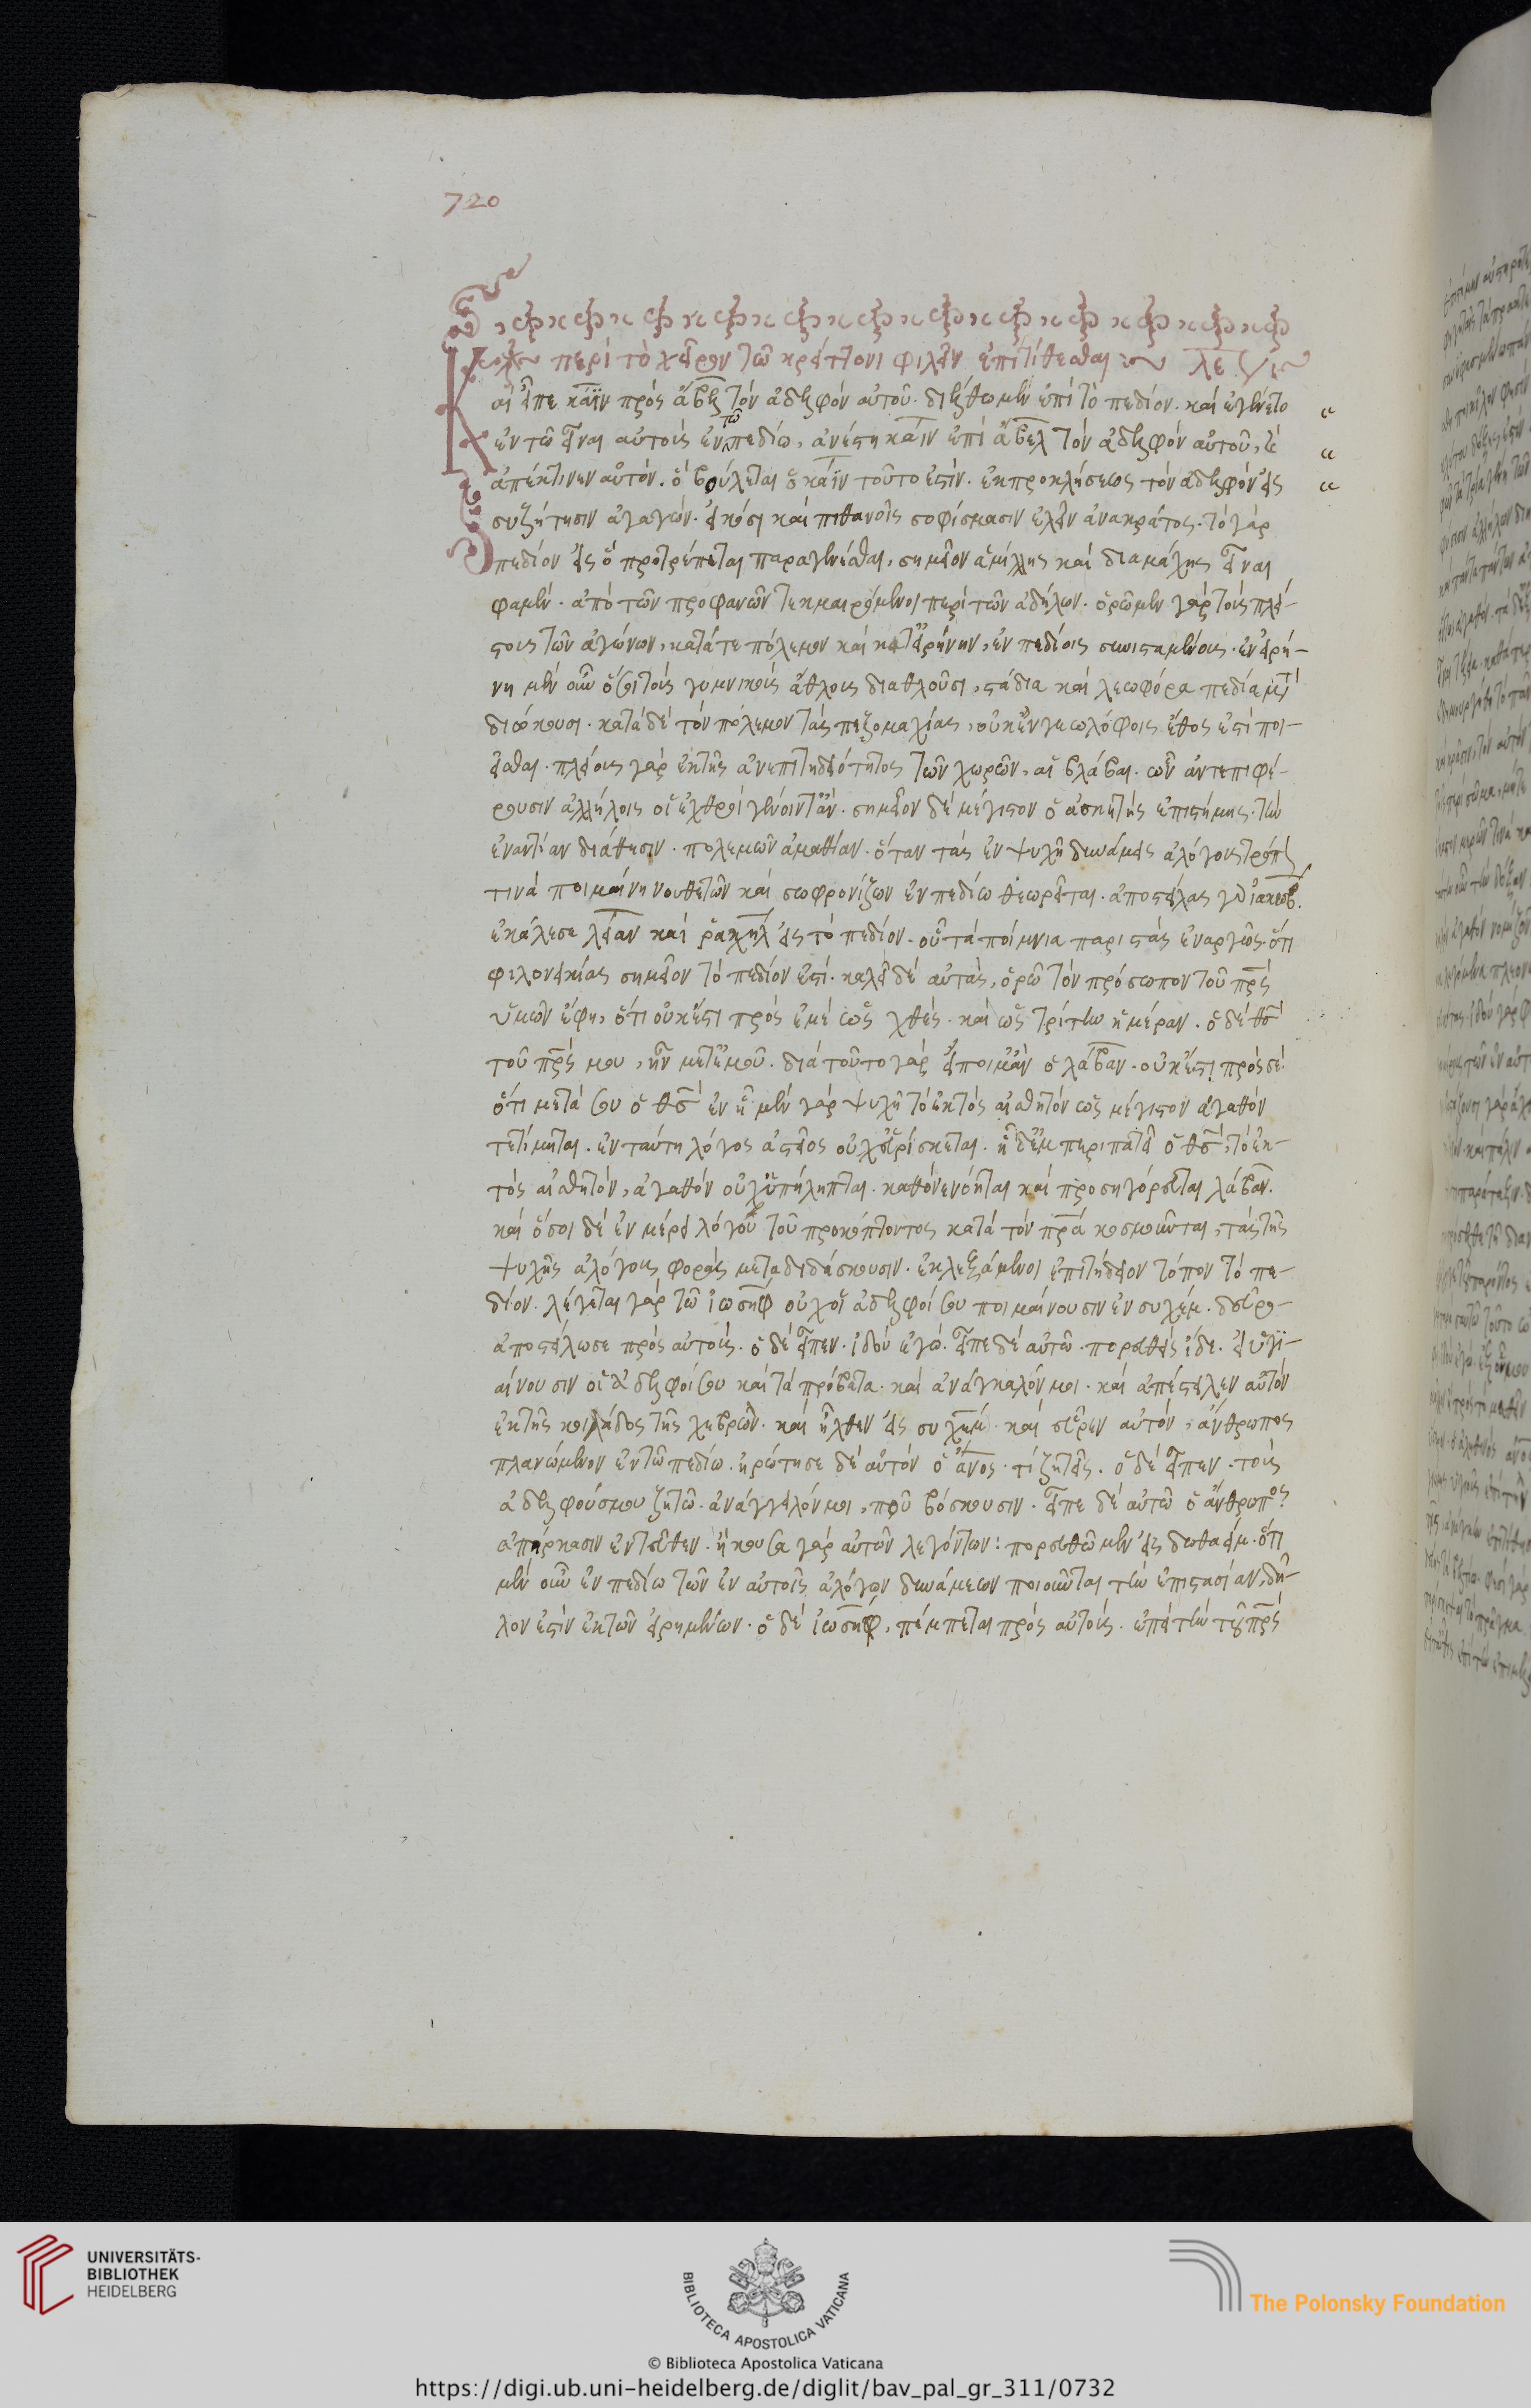 720
περὶ τὸ χεῖρον τῶ κρείττονι φιλεῖν ἐπιτίθεσθαι λε
Καὶ εἶπε κάϊν πρὸς ἄβελ τὸν ἀδελφὸν αὐτοῦ. διέλθωμεν ἐπὶ τὸ πεδίον. καὶ ἐγένετο
ἐν τῶ εἶναι αὐτοὺς ἐν τῶ πεδίω, ἀνέστη κάϊν ἐπὶ ἄβελ τὸν ἀδελφὸν αὐτοῦ, καὶ
ἀπέκτεινεν αὐτόν. ὃ βούλεται ὁ κάϊν τοῦτο ἐστίν. ἐκ προκλήσεως τὸν ἀδελφὸν εἰς
συζήτησιν ἀγαγών. εἰκόσι καὶ πιθανοῖς σοφίσμασιν ἑλεῖν ἀνακράτος. τὸ γὰρ
πεδίον εἰς ὃ προτρέπεται παραγενέσθαι, σημεῖον ἁμίλλης καὶ διαμάχης εἶναι
φαμὲν. ἀπὸ τῶν προφανῶν τεκμαιρόμενοι περὶ τῶν ἀδήλων. ὁρῶμεν γὰρ τοὺς πλεί-
στους τῶν ἀγώνων, κατά τε πόλεμον καὶ κατ' εἰρήνην, ἐν πεδίοις συνισταμένους. ἐν εἰρή-
νη μὲν οὖν ὅσοι τοὺς γυμνικοὺς ἄθλους διαθλοῦσι, στάδια καὶ λεωφόρα πεδία μετα
διώκουσι. κατὰ δὲ τὸν πόλεμον τὰς πεζομαχίας, οὐκ ἐν γεωλόφοις ἔθος ἐστὶ ποι-
εῖσθαι. πλείους γὰρ ἐκ τῆς ἀνεπιτηδειότητος τῶν χωρῶν, αἱ βλάβαι. ὧν ἀντεπιφέ-
ρουσιν ἀλλήλοις οἱ ἐχθροὶ γένοιντ' ἄν. σημεῖον δὲ μέγιστον ὁ ἀσκητὴς ἐπιστήμης. τὴν
ἐναντίαν διάθεσιν. πολεμῶν ἀμαθίαν. ὅταν τὰς ἐν ψυχῆ δυνάμεις ἀλόγους τρόπον
τινὰ ποιμαίνη νουθετῶν καὶ σωφρονίζων ἐν πεδίω θεωρεῖται. ἀποστείλας γὰρ ἰακώβ.
ἐκάλεσε λείαν καὶ ῥαχὴλ εἰς τὸ πεδίον. οὗ τὰ ποίμνια παριστὰς ἐναργῶς. ὅτι
φιλονεικίας σημεῖον τὸ πεδίον ἐστί. καλεῖ δὲ αὐτάς, ὁρῶ τὸν πρόσωπον τοῦ πρς
ὑμῶν ἔφη, ὅτι οὐκ ἔστι πρὸς ἐμὲ ὡς χθές. καὶ ὡς τρίτην ἡμέραν. ὁ δὲ θς
τοῦ πρς μου, ἦν μετ' ἐμοῦ. διὰ τοῦτο γὰρ εἴποιμ' ἂν ὁ λάβαν. οὐκ ἔστι πρὸς σέ.
ὅτι μετὰ σου ὁ θς ἐν ἧ μὲν γὰρ ψυχῆ τὸ ἐκτὸς αἰσθητὸν ὡς μέγιστον ἀγαθὸν
τετίμηται. ἐν ταύτη λόγος ἀστεῖος οὐχ εὑρίσκεται. ἧ δ' ἐμπεριπατεῖ ὁ θς, τὸ ἐκ-
τὸς αἰσθητὸν, ἀγαθὸν οὐχ ὑπείληπται. καθ' ὃ νενόηται καὶ προσηγόρευται λάβαν.
καὶ ὅσοι δὲ ἐν μέρει λόγου τοῦ προκόπτοντος κατὰ τὸν πρα κοσμοῦνται, τὰς τῆς
ψυχῆς ἀλόγους φορὰς μεταδιδάσκουσιν. ἐκλεξάμενοι ἐπιτήδειον τόπον τὸ πε-
δίον. λέγεται γὰρ τῶ ἰωσὴφ οὐχ οἱ ἀδελφοί σου ποιμαίνουσιν ἐν συχέμ. δεῦρο
ἀποστείλω σε πρὸς αὐτούς. ὁ δὲ εἶπεν. ἰδοὺ ἐγώ. εἶπε δὲ αὐτῶ. πορευθεὶς ἴδε. εἰ ὑγι-
αίνουσιν οἱ ἀδελφοί σου καὶ τὰ πρόβατα. καὶ ἀνάγγειλόν μοι. καὶ ἀπέστειλεν αὐτὸν
ἐκ τῆς κοιλάδος τῆς χεβρών. καὶ ἦλθεν εἰς συχέμ. καὶ εὗρεν αὐτὸν, ἄνθρωπος
πλανώμενον ἐν τῶ πεδίω. ἠρώτησε δὲ αὐτὸν ὁ ἄνος. τί ζητεῖς. ὁ δὲ εἶπεν. τοὺς
ἀδελφούς μου ζητῶ. ἀνάγγειλόν μοι, ποῦ βόσκουσιν. εἶπε δὲ αὐτῶ ὁ ἄνθρωπος
ἀπήρκασιν ἐντεῦθεν. ἤκουσα γὰρ αὐτῶν λεγόντων: πορευθῶμεν εἰς δωθαείμ. ὅτι
μὲν οὖν ἐν πεδίω τῶν ἐν αὐτοῖς ἀλόγων δυνάμεων ποιοῦνται τὴν ἐπιστασίαν, δῆ-
λον ἐστὶν ἐκ τῶν εἰρημένων. ὁ δὲ ἰωσὴφ, πέμπεται πρὸς αὐτούς. ἐπεὶ τὴν τοῦ πρς
UNIVERSITÄTS-
BIBLIOTHEK
HEIDELBERG
BIBLIOTECA APOSTOLICA VATICANA
The Polonsky Foundation
© Biblioteca Apostolica Vaticana
https://digi.ub.uni-heidelberg.de/diglit/bav_pal_gr_311/0732